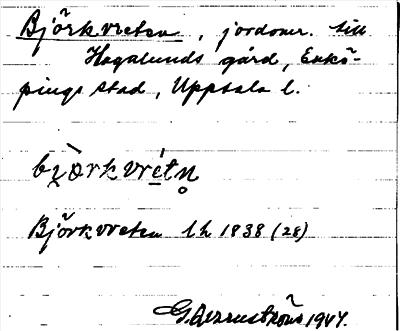 Björkvreten, jordomr. till
Hagalunds gård, Enkö-
pings stad, Uppsala l.
bjòrkvrétn̥
Björkvreten lh 1838 (28)
1947.